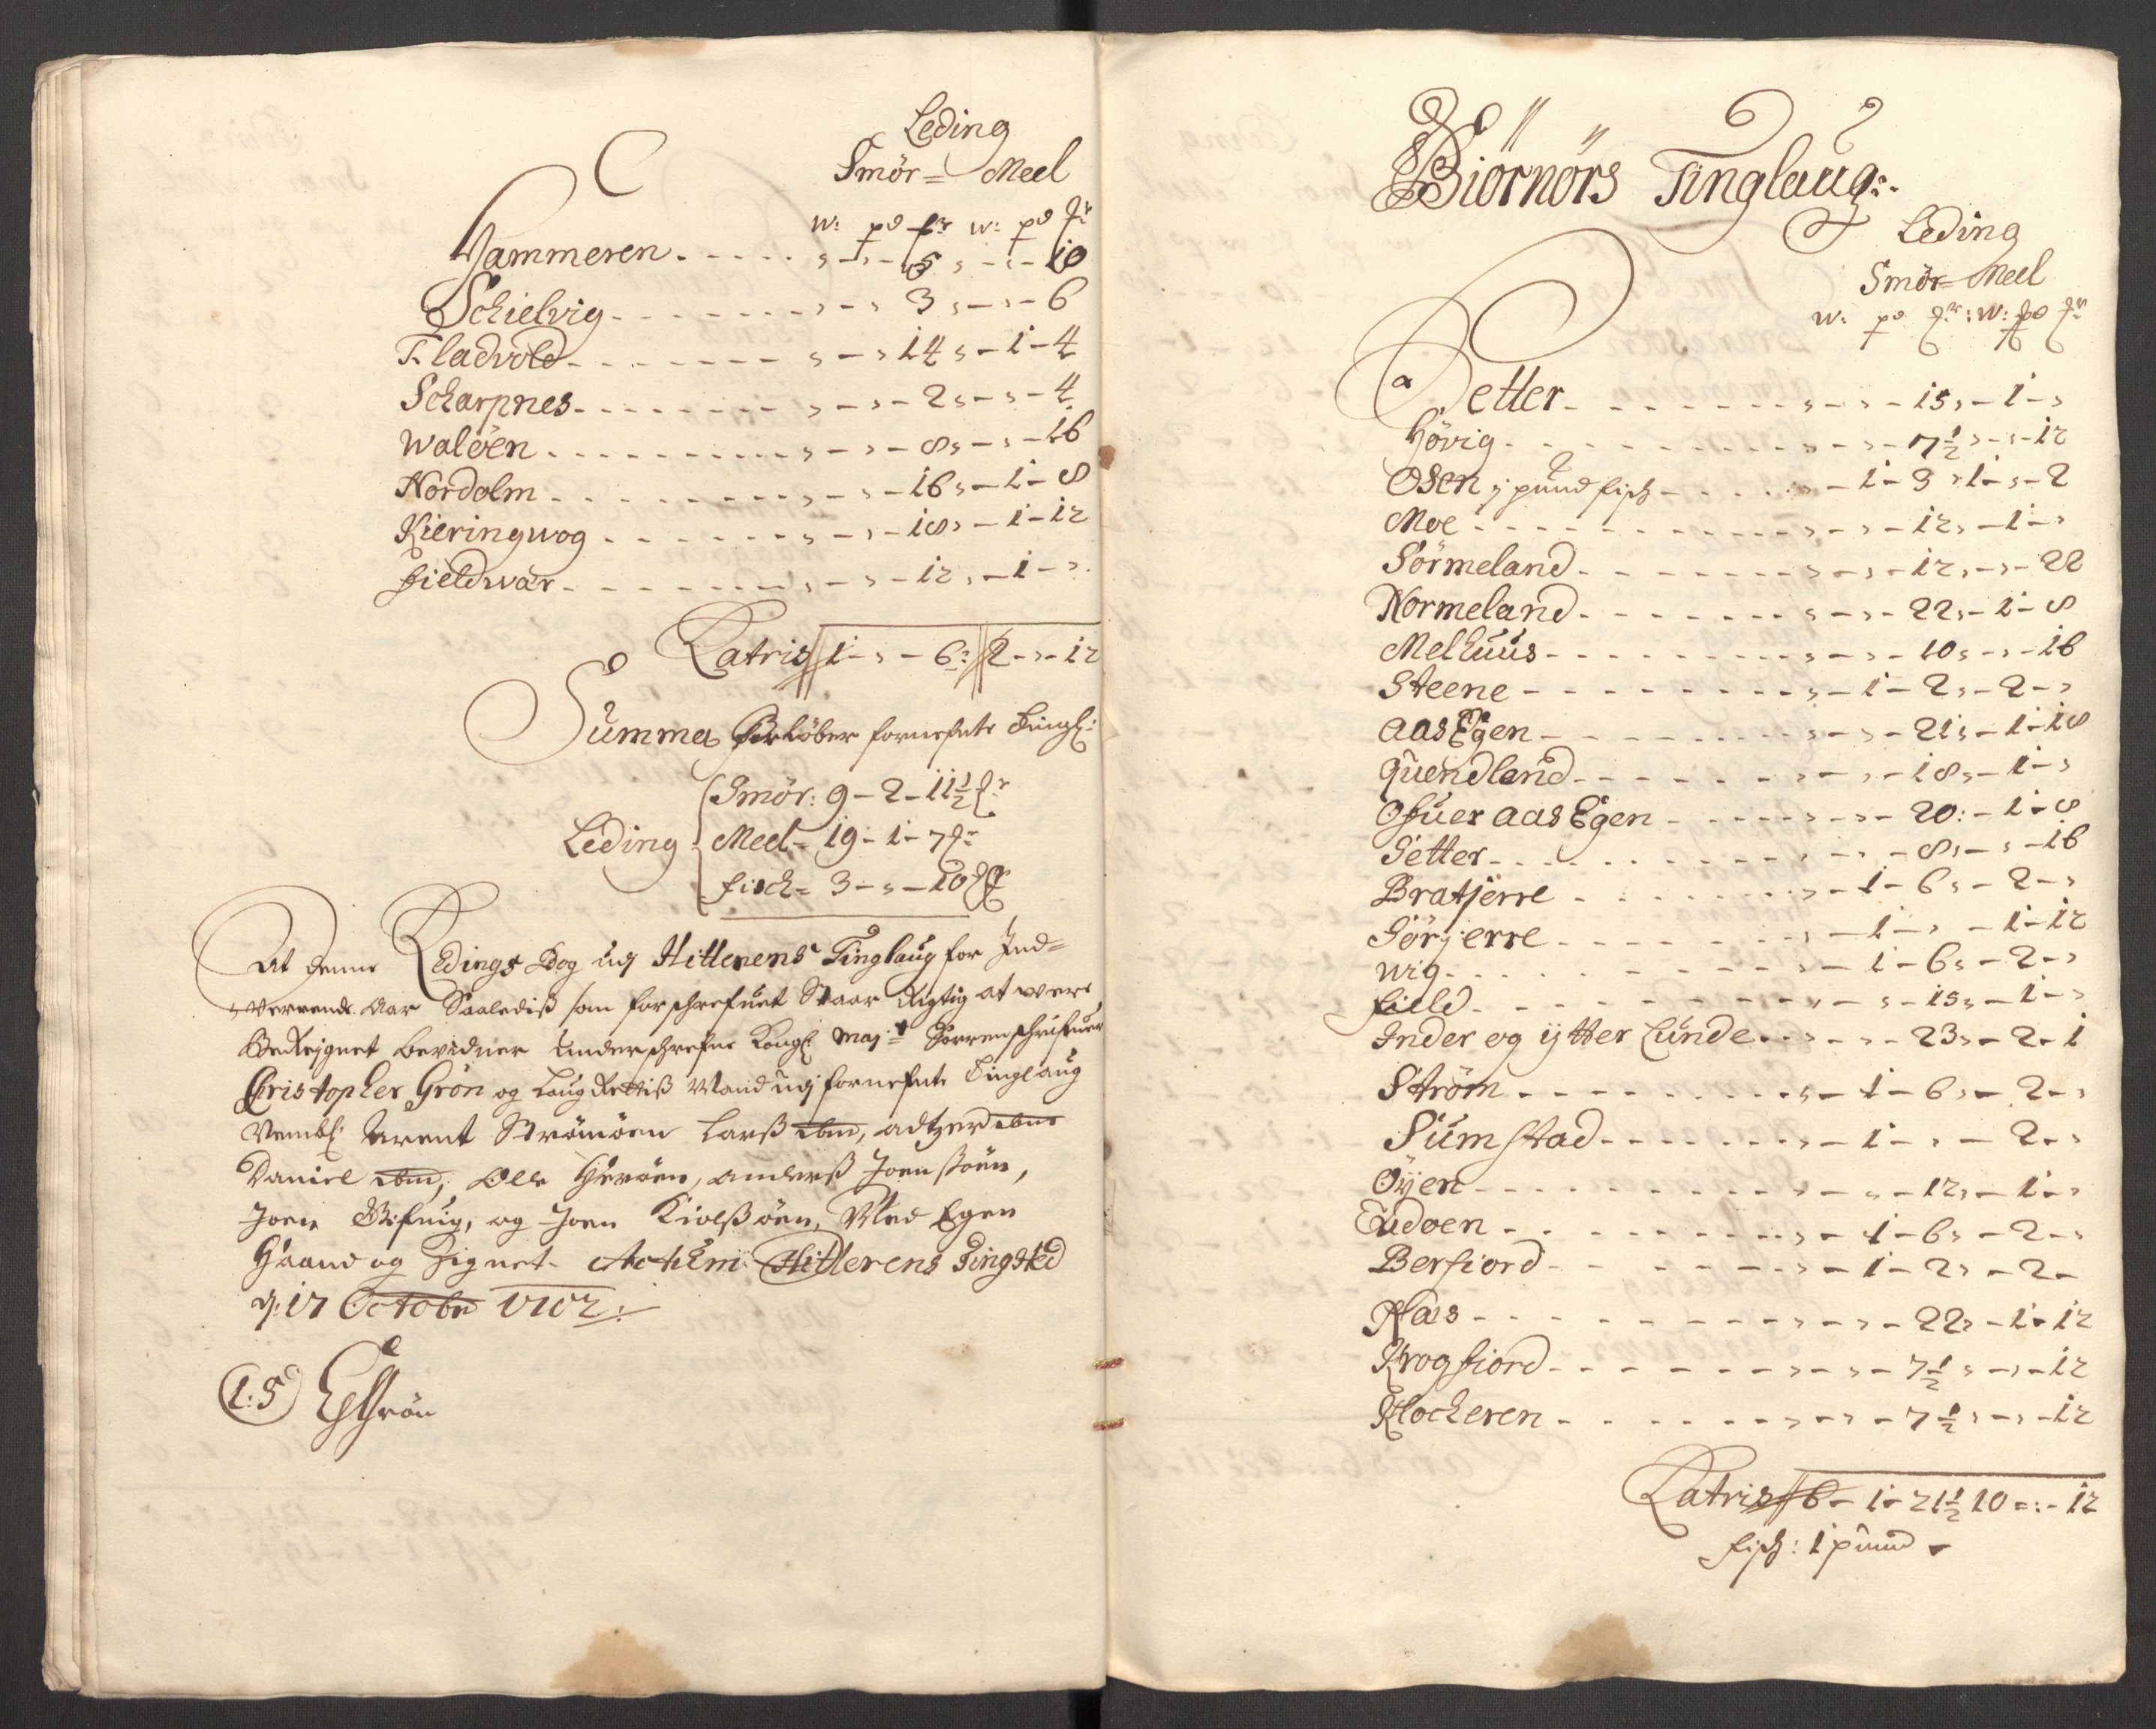 Leding
Smör = Meel
w: pd ℔r w: pd ℔r
Hammeren - - - - - „ - „ - 5 „ - „ - 10
Schielvig - - - - - - - „ - „ 3 „ - „ - 6
Fladvold - - - - - - - „ - „ 14 „ - 1 - 4
Scharpnes - - - - - - - - „ - „ - 2 „ - „ - 4
Waløen - - - - - - - - „ - „ - 8 „ - „ - 16
Nordolm - - - - - - - - „ - „ - 16 „ - 1 - 8
Kieringwog - - - - - - „ - „ - 18 „ - 1 - 12
Fieldwær - - - - - - - „ - „ - 12 „ - 1 - „
Latris 1 - „ - 6: 2 - „ - 12
Summa Beløber fornefnte Tingl:
Smör: 9 - 2 - 11½ ℔r
Leding Meel - 19 - 1 - 7 ℔r
fisch = 3 - „ - 10 ℔r
At denne Ledings Bog udj Hitterens Tinglaug for Ind=
verrende Aar Saalediß som forschrefuet Staar Rigtig at were
Beregnet bevidner underschrefne Kongl: Maj:ts Sorrenschrifuer
Christopher Grön og Laug Rettiß Mænd udj fornefnte Tinglaug
Nembl: Arent Strömöen Larß ibm, ibm
Daniel ibm, Olle Herøen, Anderß
Joen og Joen Kiolßöen, Med Egen
Haand og Zignet. Actum Hitterens Tingsted
d: 17 Octobr 1702:
L:S ChGrön
Biörnörs Tinglaug:
Leding
Smör = Meel
w: pd ℔r: w: pd ℔r
Setter - - - - - - - „ - „ - 15 „ - 1 - „
Hövig - - - - - - - - „ - „ - 7½ „ - „ - 12
Osen 1 pund fisch - - - - - „ - 1 - 3 „ 1 - „ - 2
Moe - - - - - - - - - „ - „ - 12 „ - 1 - „
Sörmeland - - - - - - - „ - „ - 12 „ - „ - 22
Normeland - - - - - - - „ - „ - 22 „ - 1 - 8
Melhuus - - - - - - - - „ - „ - 10 „ - „ - 16
Steene - - - - - - - - - „ - 1 - 2 „ - 2 - „
Aas Egen - - - - - - - - „ - „ - 21 „ - 1 - 18
Quendland - - - - - - - „ - „ - 18 „ - 1 - „
Ofuer Aas Egen - - - - - „ - „ - 20: - 1 - 8
Setter - - - - - - - - - „ - „ - 8 „ - „ - 16
Bratjerre - - - - - - - - „ - 1 - 6 „ - 2 - „
Sörjerre - - - - - - - „ - 1 - „ - 1 - 12
Wig - - - - - - - - - „ - 1 - 6 „ - 2 - „
Field - - - - - - - - - „ - „ - 15 „ - 1 - „
Inder og ytter Lunde - - „ - „ - 23 „ - 2 - 1
Ström - - - - - - - - - „ - 1 - 6 „ - 2 - „
Sumstad - - - - - - - - „ - 1 - „ - 2 - „
Öyen - - - - - - - - - „ - „ - 12 „ - 1 - „
Eudoen - - - - - - - - „ - 1 - 6 „ - 2 - „
Berfiord - - - - - - - „ - 1 - 2 „ - 2 -
Hals - - - - - - - - - „ - „ - 22 „ - 1 - 12
Krogfiord - - - - - - - „ - „ - 7½ „ - „ - 12
Klockeren - - - - - - - „ - „ - 7½ „ - „ - 12
Latris 6 - 1 - 21½ 10 - „ - 12
fisch: 1 pund -